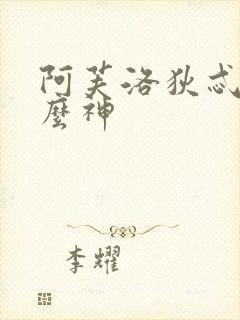 阿芙洛狄忒
麼神
李耀